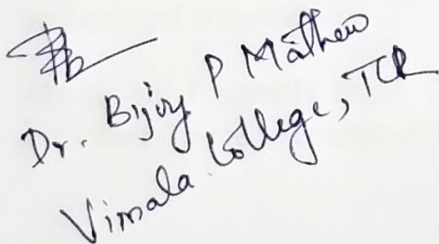 Dr. Bijoy P Mathew
Vimala College, TCR